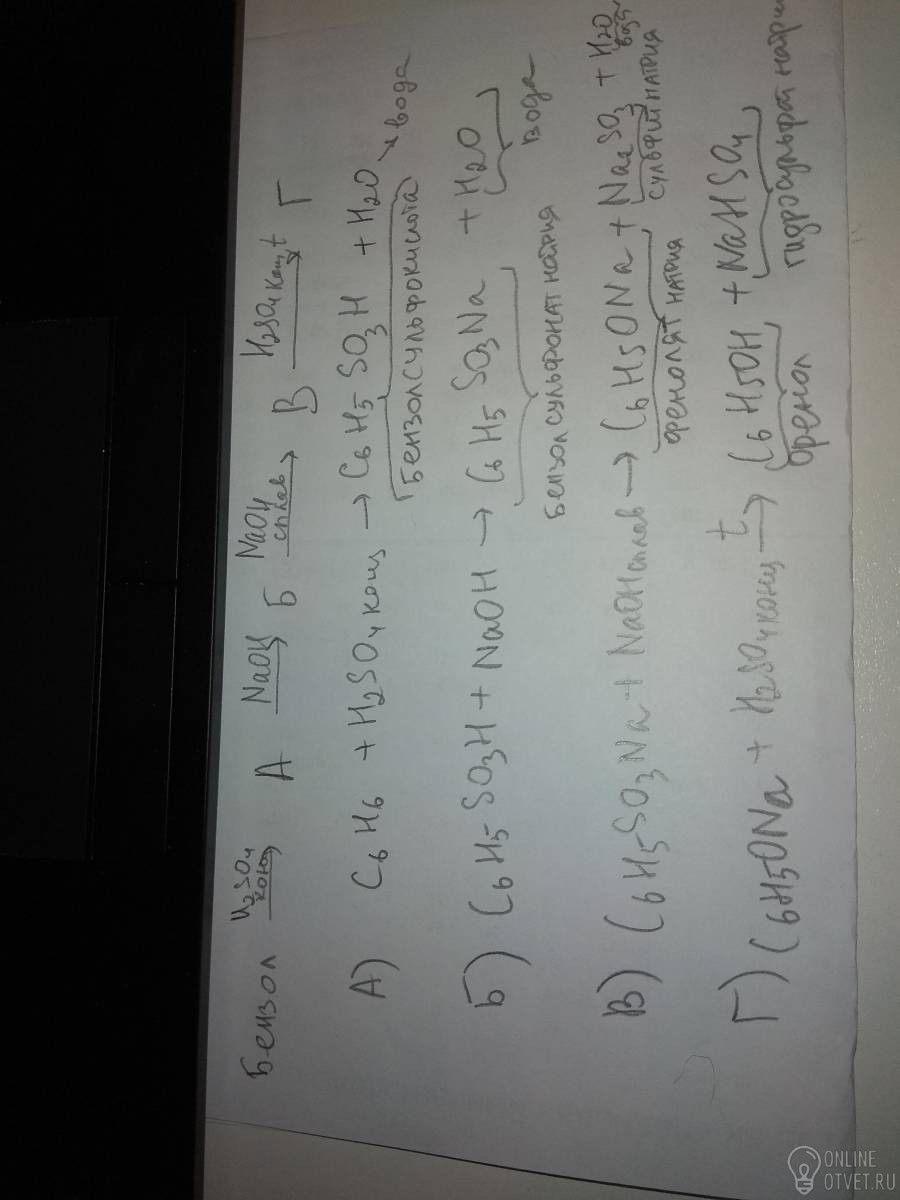 Бензол H2SO4 конц А NaOH Б NaOH сплав В H2SO4 конц, t Г
А) C6H6 + H2SO4 конц → C6H5SO3H + H2O → вода
Бензолсульфокислота
Б) C6H5-SO3H + NaOH → C6H5SO3Na + H2O
бензолсульфонат натрия вода
В) C6H5-SO3Na + NaOH сплав → C6H5ONa + Na2SO3 + H2O
фенолят натрия сульфит натрия вода
Г) C6H5ONa + H2SO4 конц t→ C6H5OH + NaHSO4
фенол гидросульфат натри
ONLINE
OTVET.RU